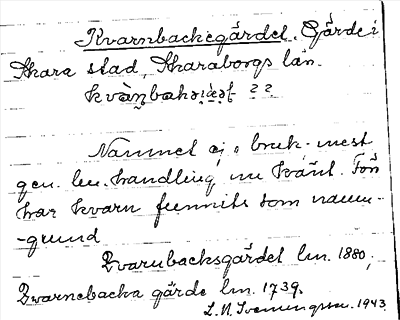 Kvarnbackegärdet. Gärde i
Skara stad, Skaraborgs län.
Namnet ej i bruk. mest
gen. lm. handling nu känt. Förr
har kvarn funnits som namn-
-grund
Qvarnbacksgärdet lm. 1880,
Qvarnebacka gärde lm. 1739.
1943